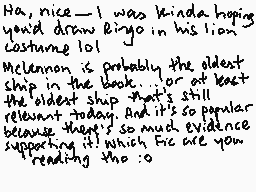 Ha, nice — I was kinda hoping
you'd draw Ringo in his lion
costume lol
McLennon is probably the oldest
ship in the book... or at least
the oldest ship that's still
relevant today. And it's so popular
because there's so much evidence
supporting it! Which Fic are you
reading tho :o